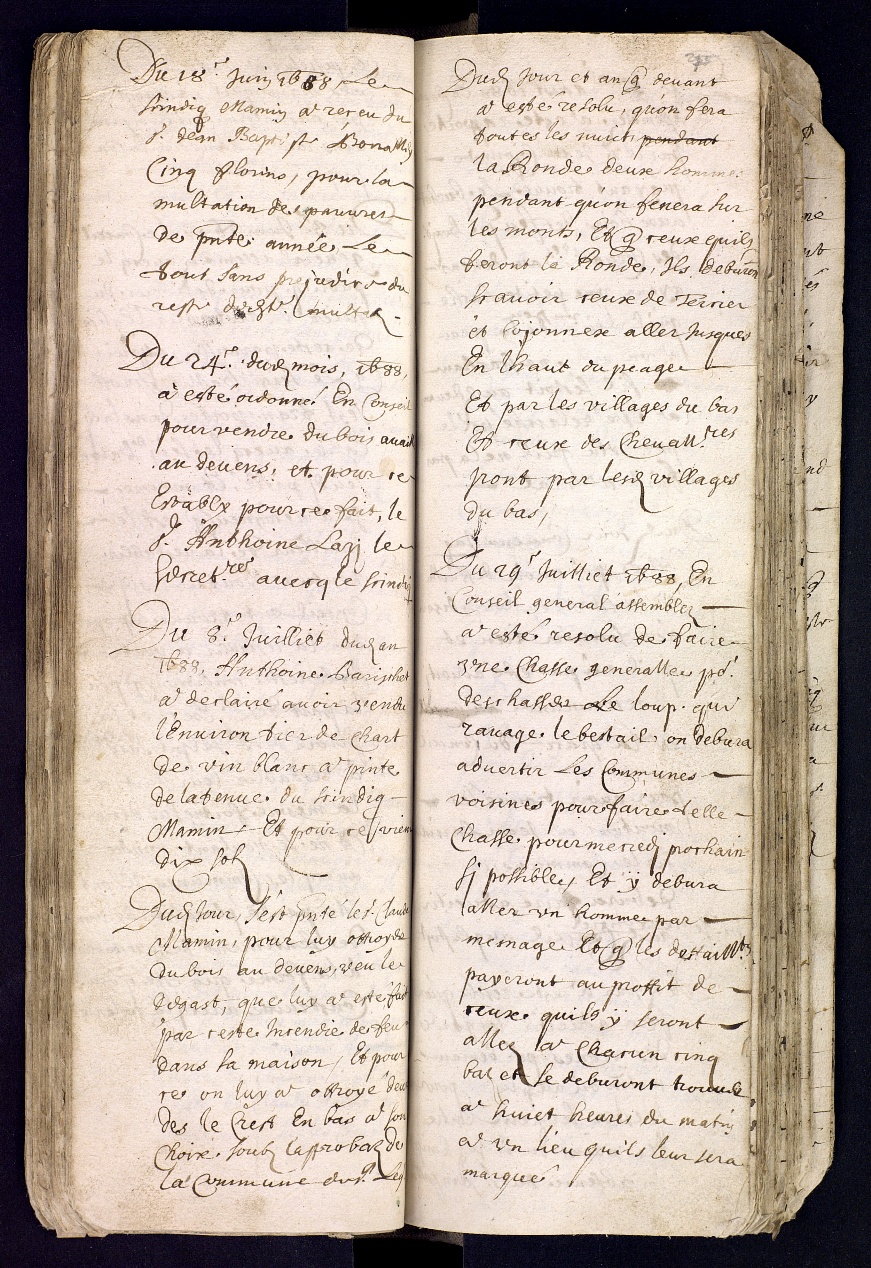 Du 18.e Juin 1688, Le
scindiq Mamin a receu du
s.r Jean Baptiste
Cinq florins, pour la
multation des pauvres
de pnte année Le
tout sans prejudice du
reste
Du 24.e dud mois, 1688,
a esté ordonné En Conseil
pour vendre du bois
au devens, et pour ce
Establx pour ce fait, le
s.r Anthoine Lazj le
secret.res avecq le scindiq
Du 8.e Juilliet dud an
1688, Anthoine Barischet
a declairé avoir vendu
l'Environ tier de Chart
de vin blanc a pinte
de la tenue du scindiq
Mamin Et pour ce
dix sols
Dud Jour, s'est pnté le s.r Claude
Mamin, pour luy ottroyer
du bois au devens, veu le
degast, que luy a esté fait
par ceste Incendie de feu
dans sa maison, Et pour
ce on luy a ottroyé deux
des le Crest En bas a son
Choix soub l'approbaon de
la Commune
Dud Jour et an q devant
a esté resolu, quon fera
toutes les nuicts pendant
la Ronde deux hommes
pendant quon fenera sur
les monts, Et q ceux quils
feront la Ronde, Ils deburont
scavoir ceux de Tercier
et Cojonnex aller Jusques
En lhaut du peage
Et par les villages du bas
Et ceux des Chevall.res
jront par lesd villages
du bas,
Du 29.e Juilliet 1688, En
Conseil general assemblez
a esté resolu de faire
vne Chasse generalle po.r
deschasser Le loup qui
ravage le bestail on debura
advertir Les Communes
voisines pour faire telle
Chasse pour mecredj prochain
sj possible, Et ÿ debura
aller vn homme par
mesnage Et q les deffaill.ts
payeront au proffit de
ceux quils ÿ seront
allez a Chacun cinq
baz et se deburont trouver
a huict heures du matin
a vn lieu quils leur sera
marqué